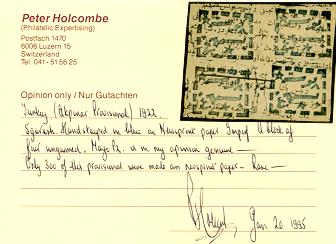 Peter Holcombe
(Philatelic Expertising)
Postfach 1470
6006 Luzern 15
Switzerland
Tel. 041 - 51 56 25
Opinion only / Nur Gutachten
Turkey (Akpinar Provisional) 1922
Handstamped in blue on Newsprint paper Imperf A block of
four ungummed. is in my opinion genuine —
Only 300 of this provisional were made on newsprint paper — Rare —
Jan 20 1995